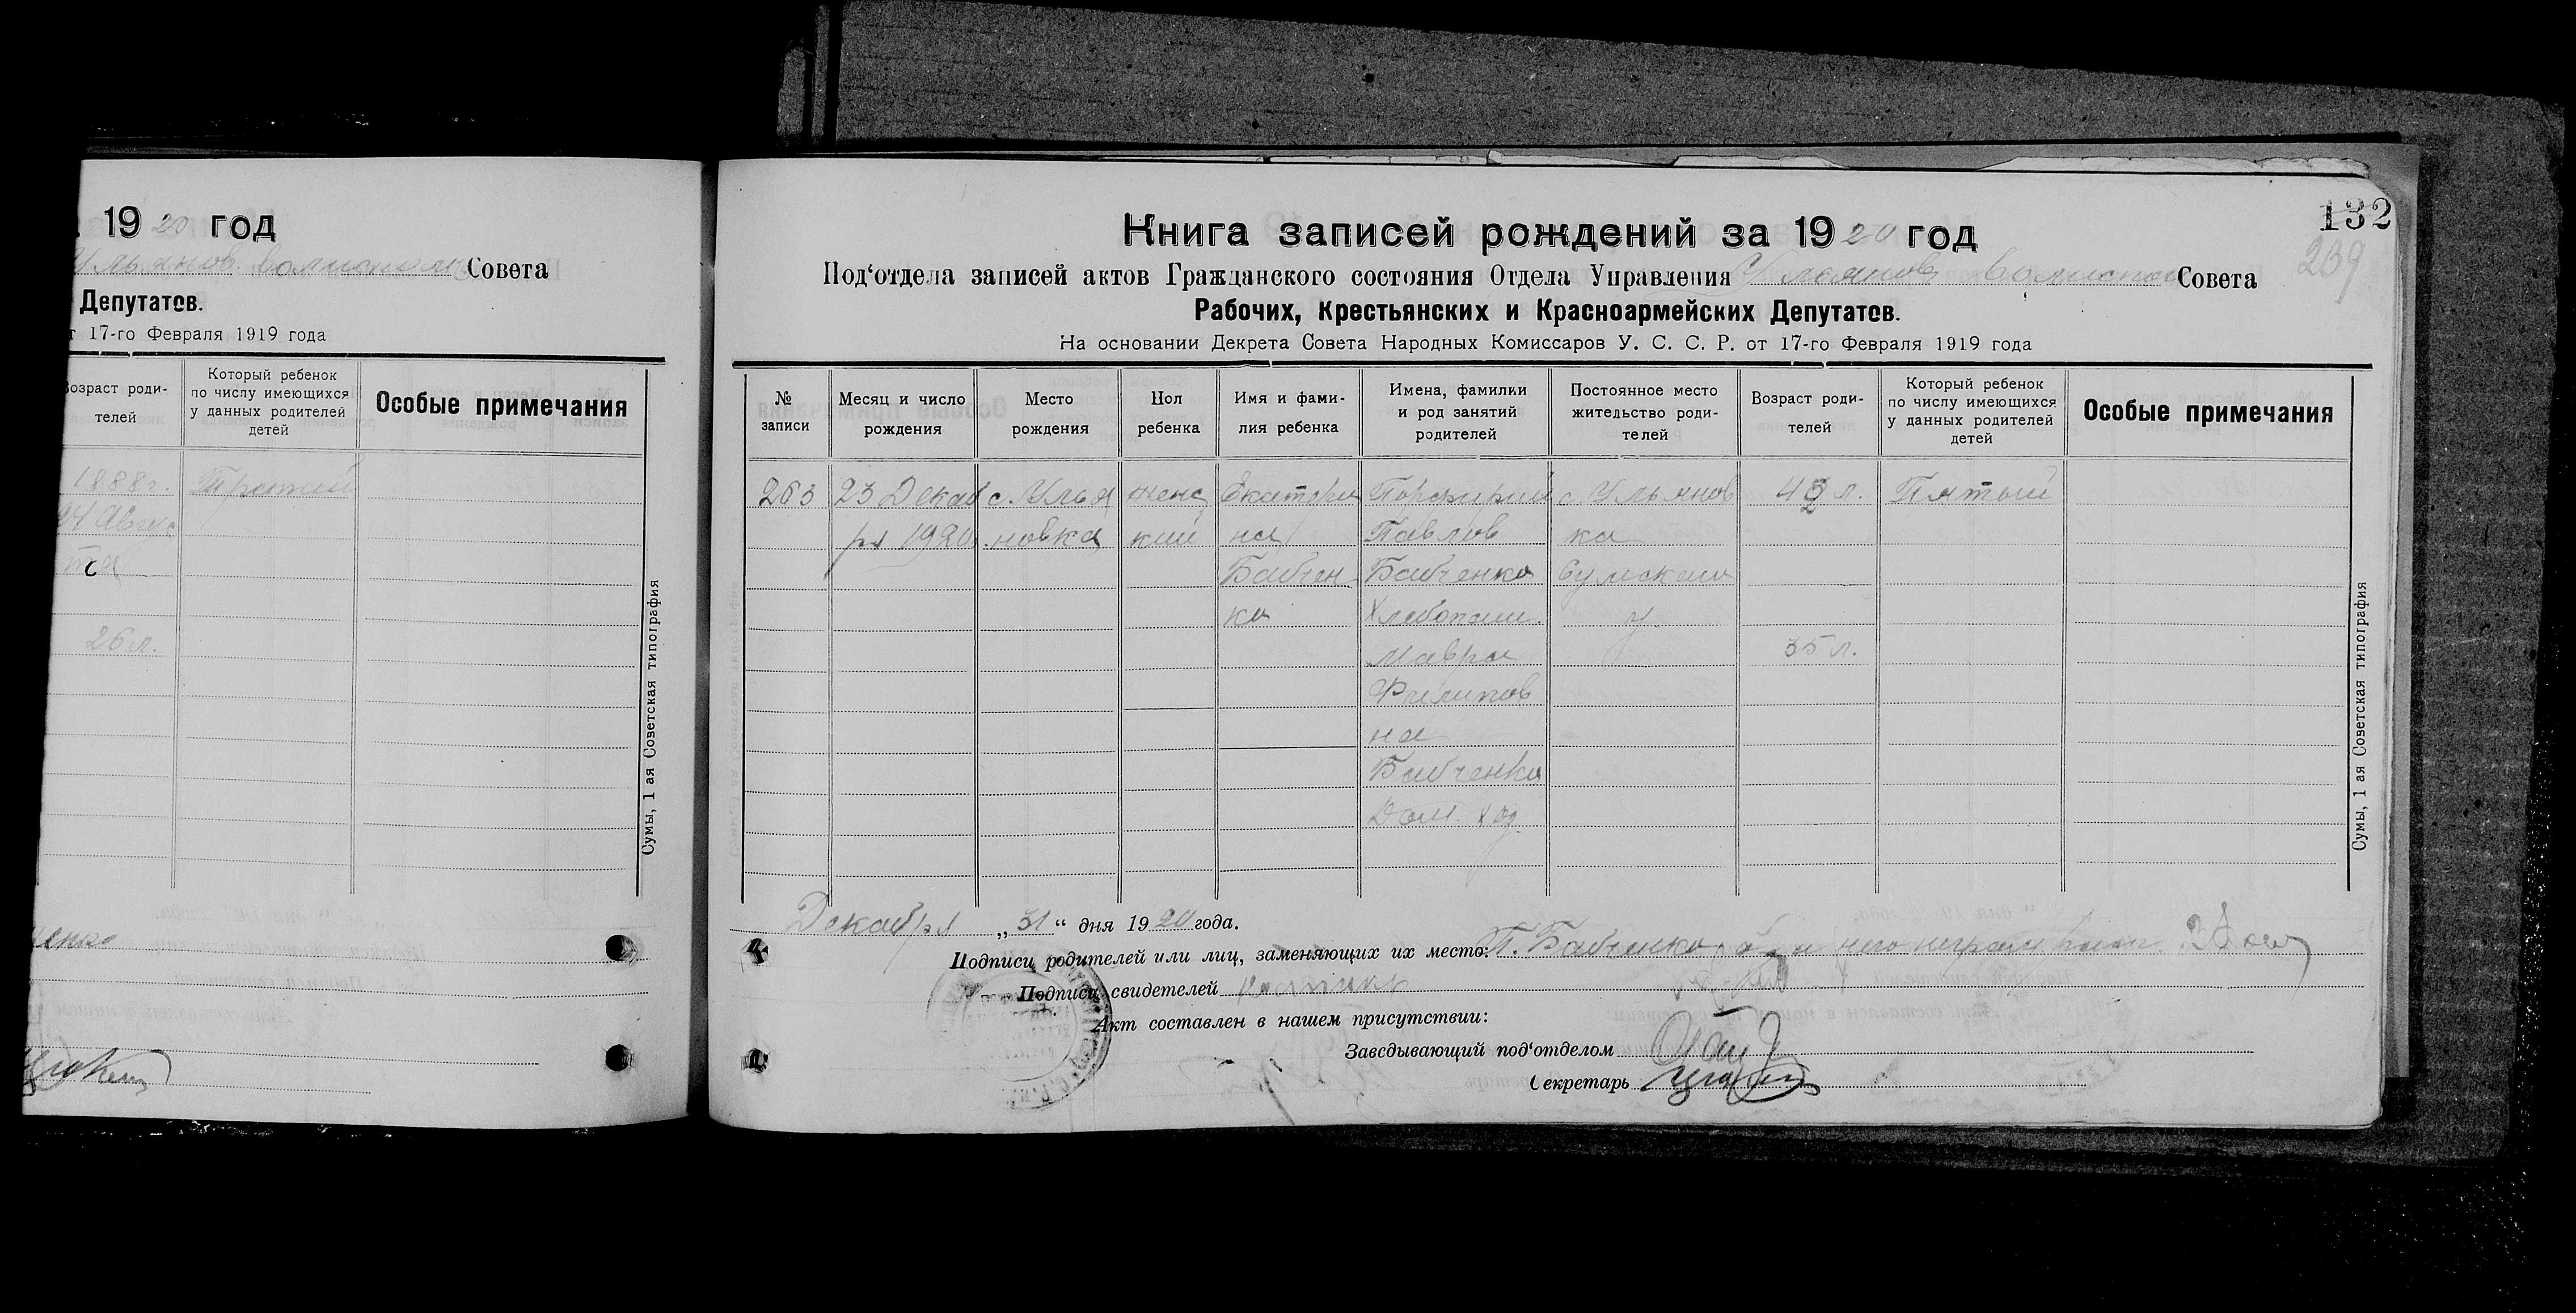 19 20 год
Ульянов. волисполк. Совета
Депутатов.
т 17-го Февраля 1919 года
Возраст роди-
телей
Который ребенок
по числу имеющихся
у данных родителей
детей
Особые примечания
1888 г. Третий
24 Авгус
та
26 л.
Сумы, 1 ая Советская типография
132
239
Книга записей рождений за 19 20 год
Под‘отдела записей актов Гражданского состояния Отдела Управления Ульянов волиспол Совета
Рабочих, Крестьянских и Красноармейских Депутатов.
На основании Декрета Совета Народных Комиссаров У. С. С. Р. от 17-го Февраля 1919 года
№
записи
Месяц и число
рождения
Место
рождения
Пол
ребенка
Имя и фами-
лия ребенка
Имена, фамилии
и род занятий
родителей
Постоянное место
жительство роди-
телей
Возраст роди-
телей
Который ребенок
по числу имеющихся
у данных родителей
детей
Особые примечания
263
23 Декаб
ря 1920
с. Улья
новка
женс
кий
Екатери
на
Бабчен
ко
Порфирий
Павлов
Бабченко
Хлебопаш.
Мавра
Филипов
на
Бабченко
Дом. хоз.
с. Ульянов
ка
Сумского
у
42 л.
35 л.
Пятый
Сумы, 1 ая Советская типография
Декабря „31“ дня 19 20 года.
Подписи родителей или лиц, заменяющих их место: П. Бабченко, а за него неграм. расп.
Подписи свидетелей
Акт составлен в нашем присутствии:
Заведывающий под‘отделом
Секретарь